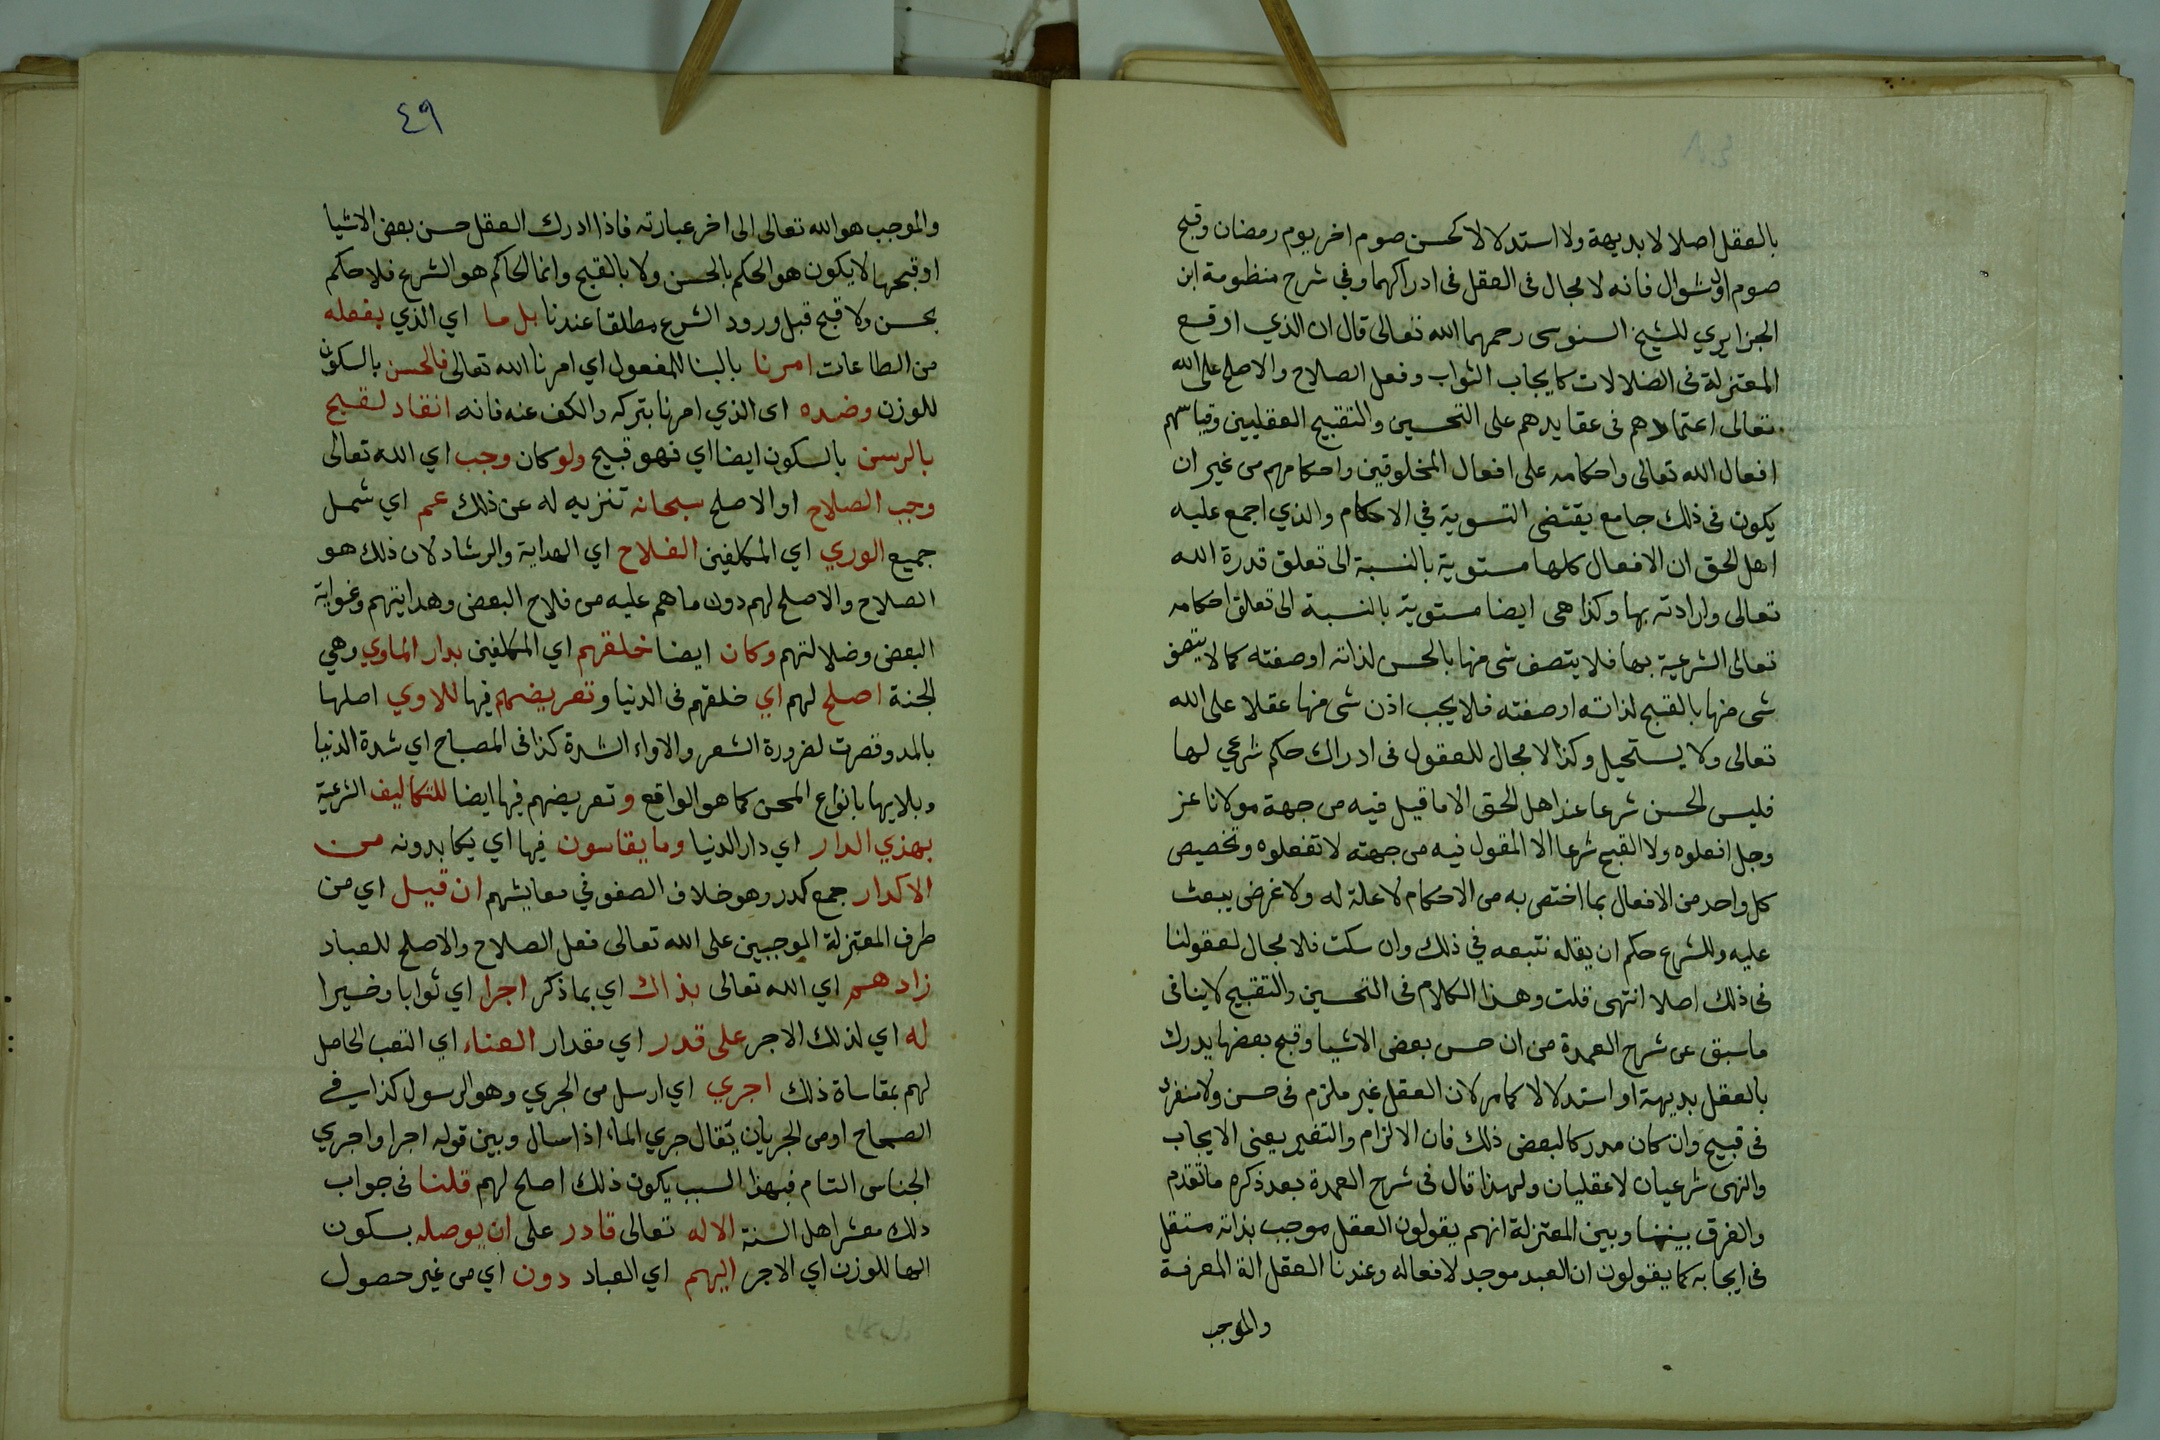 بالعقل اصلا لا بديهة ولا استدلالا كحسن صوم اخر يوم رمضان وقبح
صوم اول شوال فانه لا مجال فى العقل فى ادراكهما وفي شرح منظومة ابن
الجزايري للشيخ السنوسى رحمهما الله تعالى قال ان الذي اوقع
المعتزلة فى الضلالات كايجاب الثواب وفعل الصلاح والاصلح على الله
تعالى اعتمادهم فى عقايدهم على التحسين والتقبيح العقليين وقياسهم
افعال الله تعالى واحكامه على افعال المخلوقين واحكامهم من غير ان
يكون فى ذلك جامع يقتضى التسوية في الاحكام والذي اجمع عليه
اهل الحق ان الافعال كلها مستوية بالنسبة الى تعلق قدرة الله
تعالى وارادته بها وكذا هى ايضا مستوية بالنسبة الى تعلق احكامه
تعالى الشرعية بها فلا يتصف شى منها بالحسن لذاته اوصفته كما لا يتصف
شى منها بالقبح لذاته اوصفته فلا يجب اذن شى منها عقلا على الله
تعالى ولا يستحيل وكذا لا مجال للعقول فى ادراك حكم شرعي لها
فليس الحسن شرعا عند اهل الحق الا ما قيل فيه من جهة مولانا عز
وجل افعلوه ولا القبح شرعا الا المقول فيه من جهته لا تفعلوه وتخصيص
كل واحد من الافعال بما اختص به من الاحكام لا علة له ولا غرض يبعث
عليه وللشرع حكم ان يقله نتبعه في ذلك وان سكت فلا مجال لعقولنا
فى ذلك اصلا انتهى قلت وهذا الكلام فى التحسين والتقبيح لا ينافى
ماسبق عن شرح العمدة من ان حسن بعض الاشيا وقبح بعضها يدرك
بالعقل بديهة او استدلالا كما مر لان العقل غير ملزم فى حسن ولا منفر
فى قبيح وان كان مدركا لبعض ذلك فان الالزام والتنفير يعنى الايجاب
والنهى شرعيان لا عقليان ولهذا قال فى شرح العمدة بعد ذكره ما تقدم
والفرق بيننا وبين المعتزلة انهم يقولون العقل موجب بذاته مستقل
فى ايجابه كما يقولون ان العبد موجد لافعاله وعندنا العقل الة المعرفة
والموجب
٤٩
والموجب هو الله تعالى الى اخر عبارته فاذا ادرك العقل حسن بعض الاشيا
او قبحها لا يكون هو الحكم بالحسن ولا بالقبح وانما الحاكم هو الشرع فلا حكم
بحسن ولا قبح قبل ورود الشرع مطلقا عندنا بل ما اي الذي يفعله
من الطاعات امرنا بالبنا للمفعول اي امرنا الله تعالى فالحسن بالسكون
للوزن وضده اى الذي امرنا بتركه والكف عنه فانه انقاد لقبح
بالرسن بالسكون ايضا اي فهو قبيح ولو كان وجب اي الله تعالى
وجب الصلاح او الاصلح سبحانه تنزيه له عن ذلك عم اي شمل
جميع الوري اي المكلفين الفلاح اي الهداية والرشاد لان ذلك هو
الصلاح والاصلح لهم دون ما هم عليه من فلاح البعض وهدايتهم وغواية
البعض وضلالتهم وكان ايضا خلقهم اي المكلفين بدار الماوي وهي
الجنة اصلح لهم اي خلقهم فى الدنيا وتعريضهم فيها للاوي اصلها
بالمد وقصرت لضرورة الشعر والاواء الشدة كذا فى المصباح اي شدة الدنيا
وبلايها بانواع المحن كما هو الواقع و تعريضهم فيها ايضا للتكاليف الشرعية
بهذي الدار اي دار الدنيا وما يقاسون فيها اي يكابدونه من
الاكدار جمع كدر وهو خلاف الصفو في معايشهم ان قيل اي من
طرف المعتزلة الموجبين على الله تعالى فعل الصلاح والاصلح للعباد
زادهم اي الله تعالى بذاك اي بما ذكر اجرا اي ثوابا وخيرا
له اي لذلك الاجر على قدر اي مقدار العناء اي التعب الحاصل
لهم بمقاساة ذلك اجري اي ارسل من الجري وهو الرسول كذا في
الصحاح او من الجريان يقال جري الماء اذا سال وبين قوله اجرا واجري
الجناس التام فبهذا السبب يكون ذلك اصلح لهم قلنا فى جواب
ذلك معشر اهل السنة الاله تعالى قادر على ان يوصله بسكون
الها للوزن اي الاجر اليهم اي العباد دون اي من غير حصول